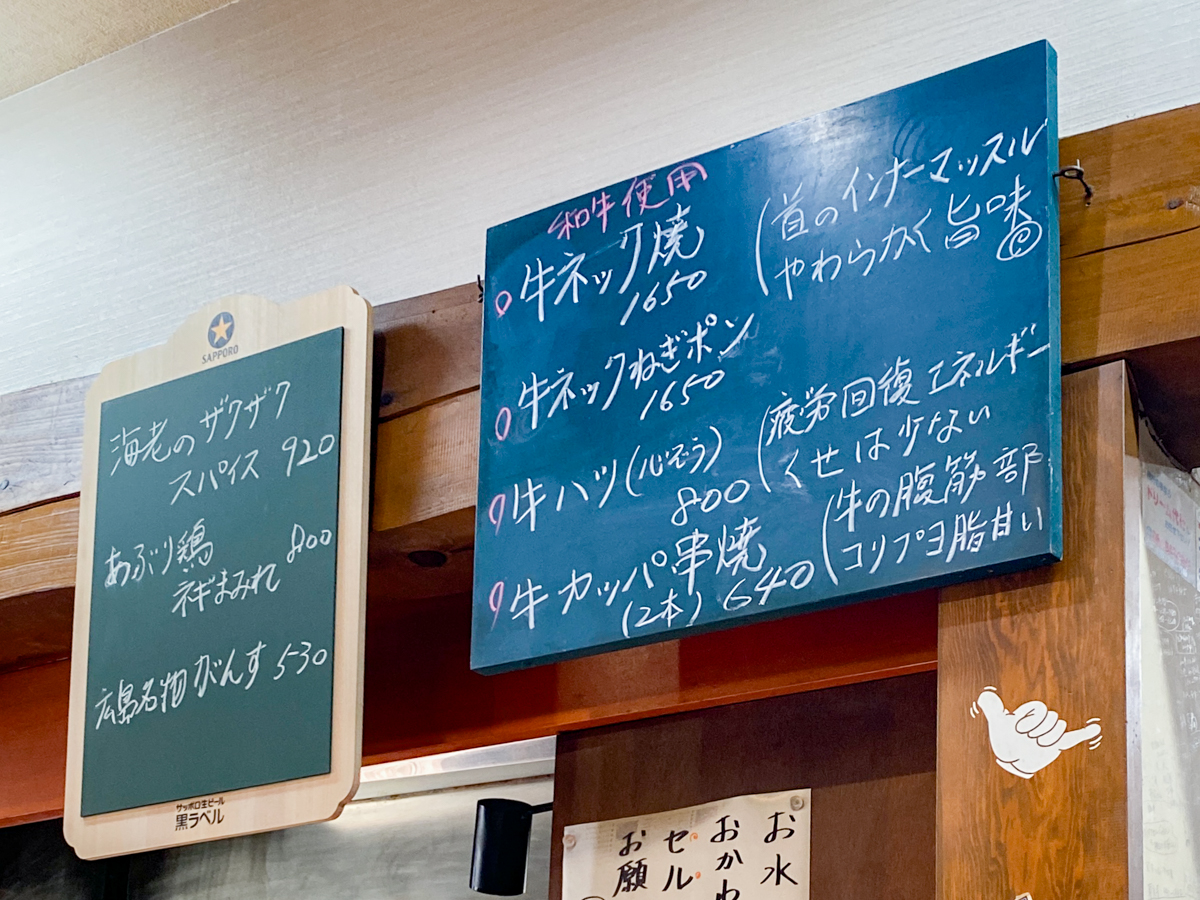 SAPPORO
海老のザクザク
スパイス 920
あぶり鶏
ネギまみれ 800
広島名物がんす 530
サッポロ生ビール
黒ラベル
和牛使用
牛ネック焼
1650
(首のインナーマッスル
やわらかく旨味
牛ネックねぎポン
1650
牛ハツ(心ぞう)
800
(疲労回復エネルギー
くせは少ない
牛カッパ串焼
(2本) 640
(牛の腹筋部
コリプヨ脂甘い
お水
おかわ
セル
お願